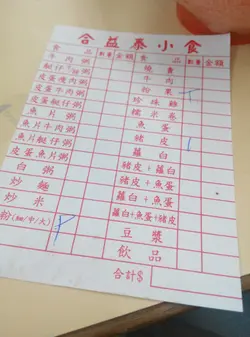 合益泰小食
食品 數量 金額 食品 數量 金額
牛肉粥 燒賣
艇仔粥 牛肉
皮蛋瘦肉粥 粉果
皮蛋牛肉粥 珍珠雞
皮蛋艇仔粥 糯米卷
魚片粥 魚蛋
魚片牛肉粥 豬皮
魚片艇仔粥 蘿白
皮蛋魚片粥 豬皮+魚蛋
白粥 豬皮+蘿白
炒麵 蘿白+魚蛋
炒米 蘿白+魚蛋+豬皮
粉(細/中/大) 豆漿
飲品
合計$